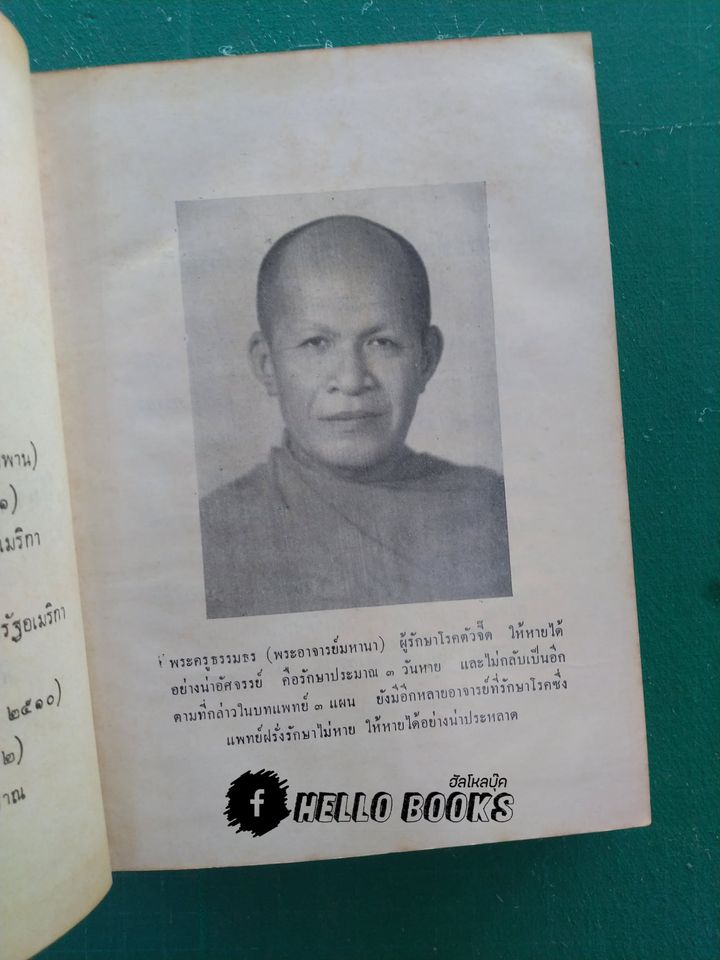 พาน)
๑)
เมริกา
รัฐอเมริกา
๒๕๑๐)
๒)
าณ
พระครูธรรมธร (พระอาจารย์มหานา) ผู้รักษาโรคตัวจี๊ด ให้หายได้
อย่างน่าอัศจรรย์ คือรักษาประมาณ ๓ วันหาย และไม่กลับเป็นอีก
ตามที่กล่าวในบทแพทย์ ๓ แผน ยังมีอีกหลายอาจารย์ที่รักษาโรคซึ่ง
แพทย์ฝรั่งรักษาไม่หาย ให้หายได้อย่างน่าประหลาด
ฮัลโหลบุ๊ค
f HELLO BOOKS